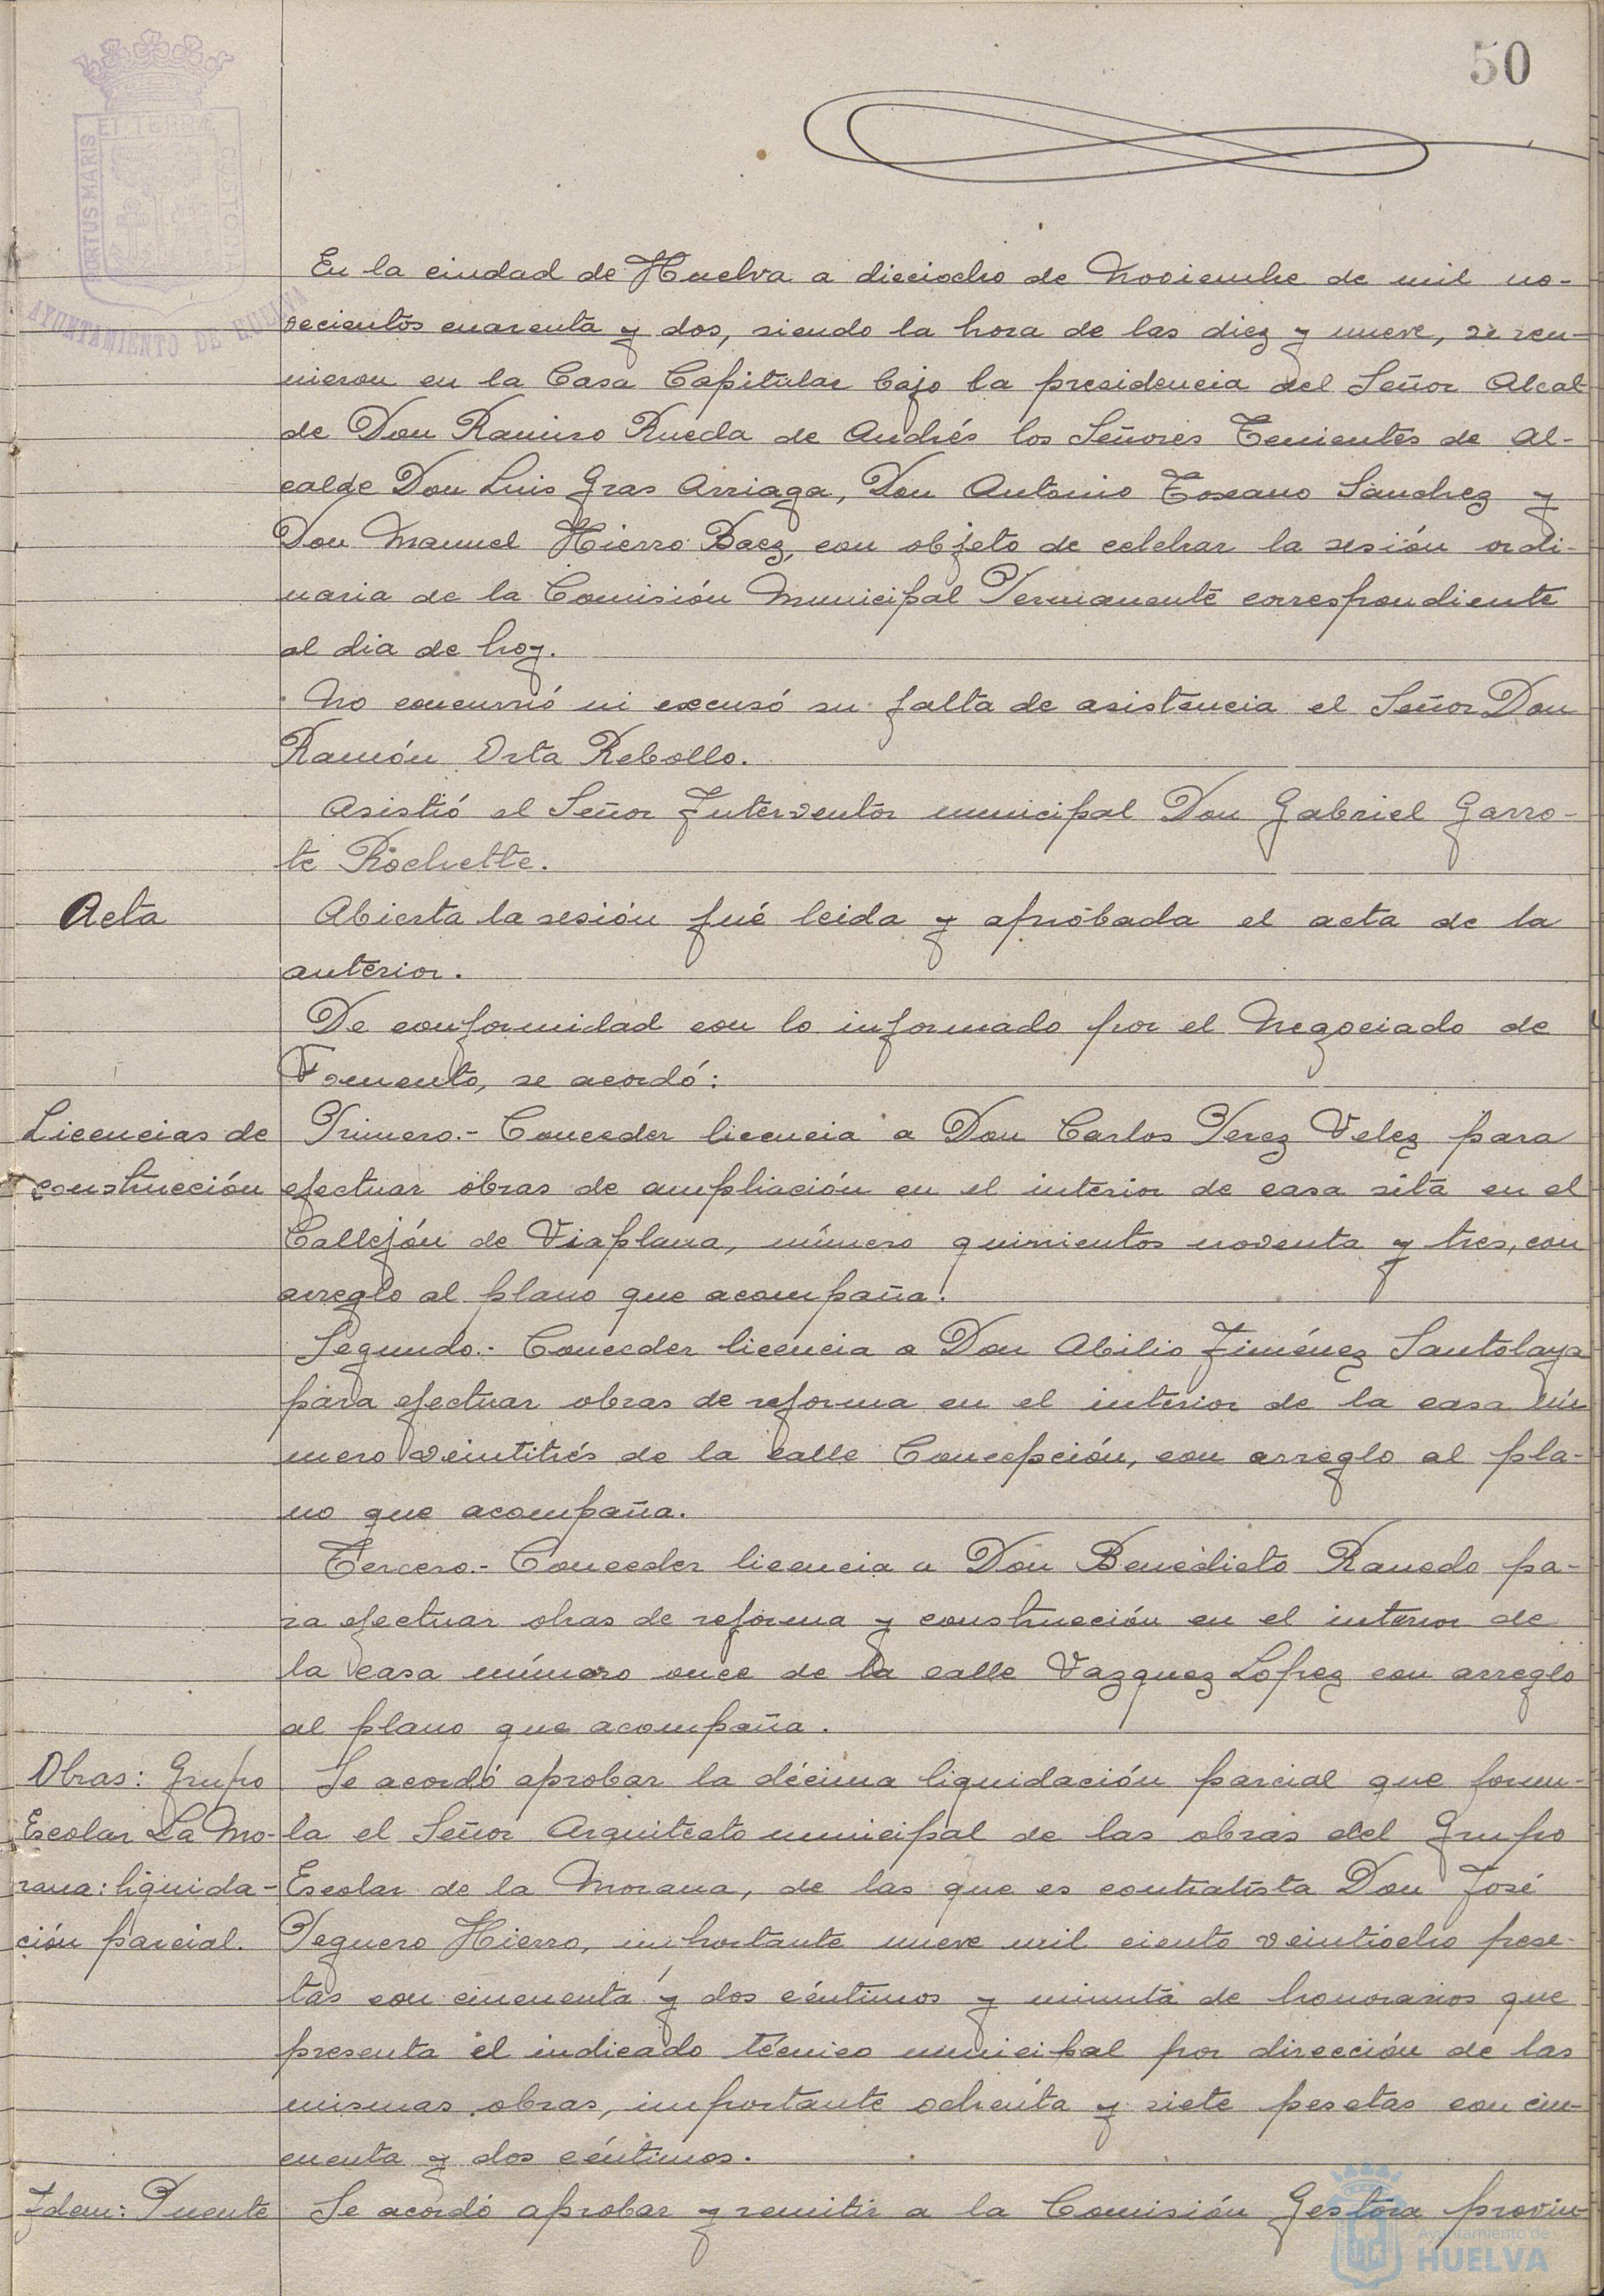 50
PORTUS MARIS
ET TERRÆ
CUSTODIA
AYUNTAMIENTO DE HUELVA
En la ciudad de Huelva a dieciocho de Noviembre de mil no-
vecientos cuarenta y dos, siendo la hora de las diez y nueve, se reu-
nieron en la Casa Capitular bajo la presidencia del Señor Alcal-
de Don Ramiro Rueda de Andrés los Señores Tenientes de Al-
calde Don Luis Gras Arriaga, Don Antonio Toscano Sanchez y
Don Manuel Hierro Baez, con objeto de celebrar la sesión ordi-
naria de la Comisión Municipal Permanente correspondiente
al dia de hoy.
No concurrió ni excusó su falta de asistencia el Señor Don
Ramón Orta Rebollo.
Asistió el Señor Interventor municipal Don Gabriel Garro-
te Rochette.
Acta
Abierta la sesión fué leida y aprobada el acta de la
anterior.
De conformidad con lo informado por el Negociado de
Fomento, se acordó:
Licencias de
construcción
Primero.- Conceder licencia a Don Carlos Perez Velez para
efectuar obras de ampliación en el interior de casa sita en el
Callejón de Viaplana, número quinientos noventa y tres, con
arreglo al plano que acompaña.
Segundo.- Conceder licencia a Don Abilio Jiménez Santolaya
para efectuar obras de reforma en el interior de la casa nú
mero veintitrés de la calle Concepción, con arreglo al pla-
no que acompaña.
Tercero.- Conceder licencia a Don Benedicto Ranedo pa-
ra efectuar obras de reforma y construcción en el interior de
la casa número once de la calle Vazquez Lopez con arreglo
al plano que acompaña.
Obras: Grupo
Escolar La Mo-
rana: liquida-
ción parcial.
Se acordó aprobar la décima liquidación parcial que formu-
la el Señor Arquitecto municipal de las obras del Grupo
Escolar de la Morana, de las que es contratista Don José
Peguero Hierro, importante nueve mil ciento veintiocho pese-
tas con cincuenta y dos céntimos y minuta de honorarios que
presenta el indicado técnico municipal por dirección de las
mismas obras, importante ochenta y siete pesetas con cin-
cuenta y dos céntimos.
Idem: Puente
Se acordó aprobar y remitir a la Comisión Gestora provin-
Ayuntamiento de
HUELVA